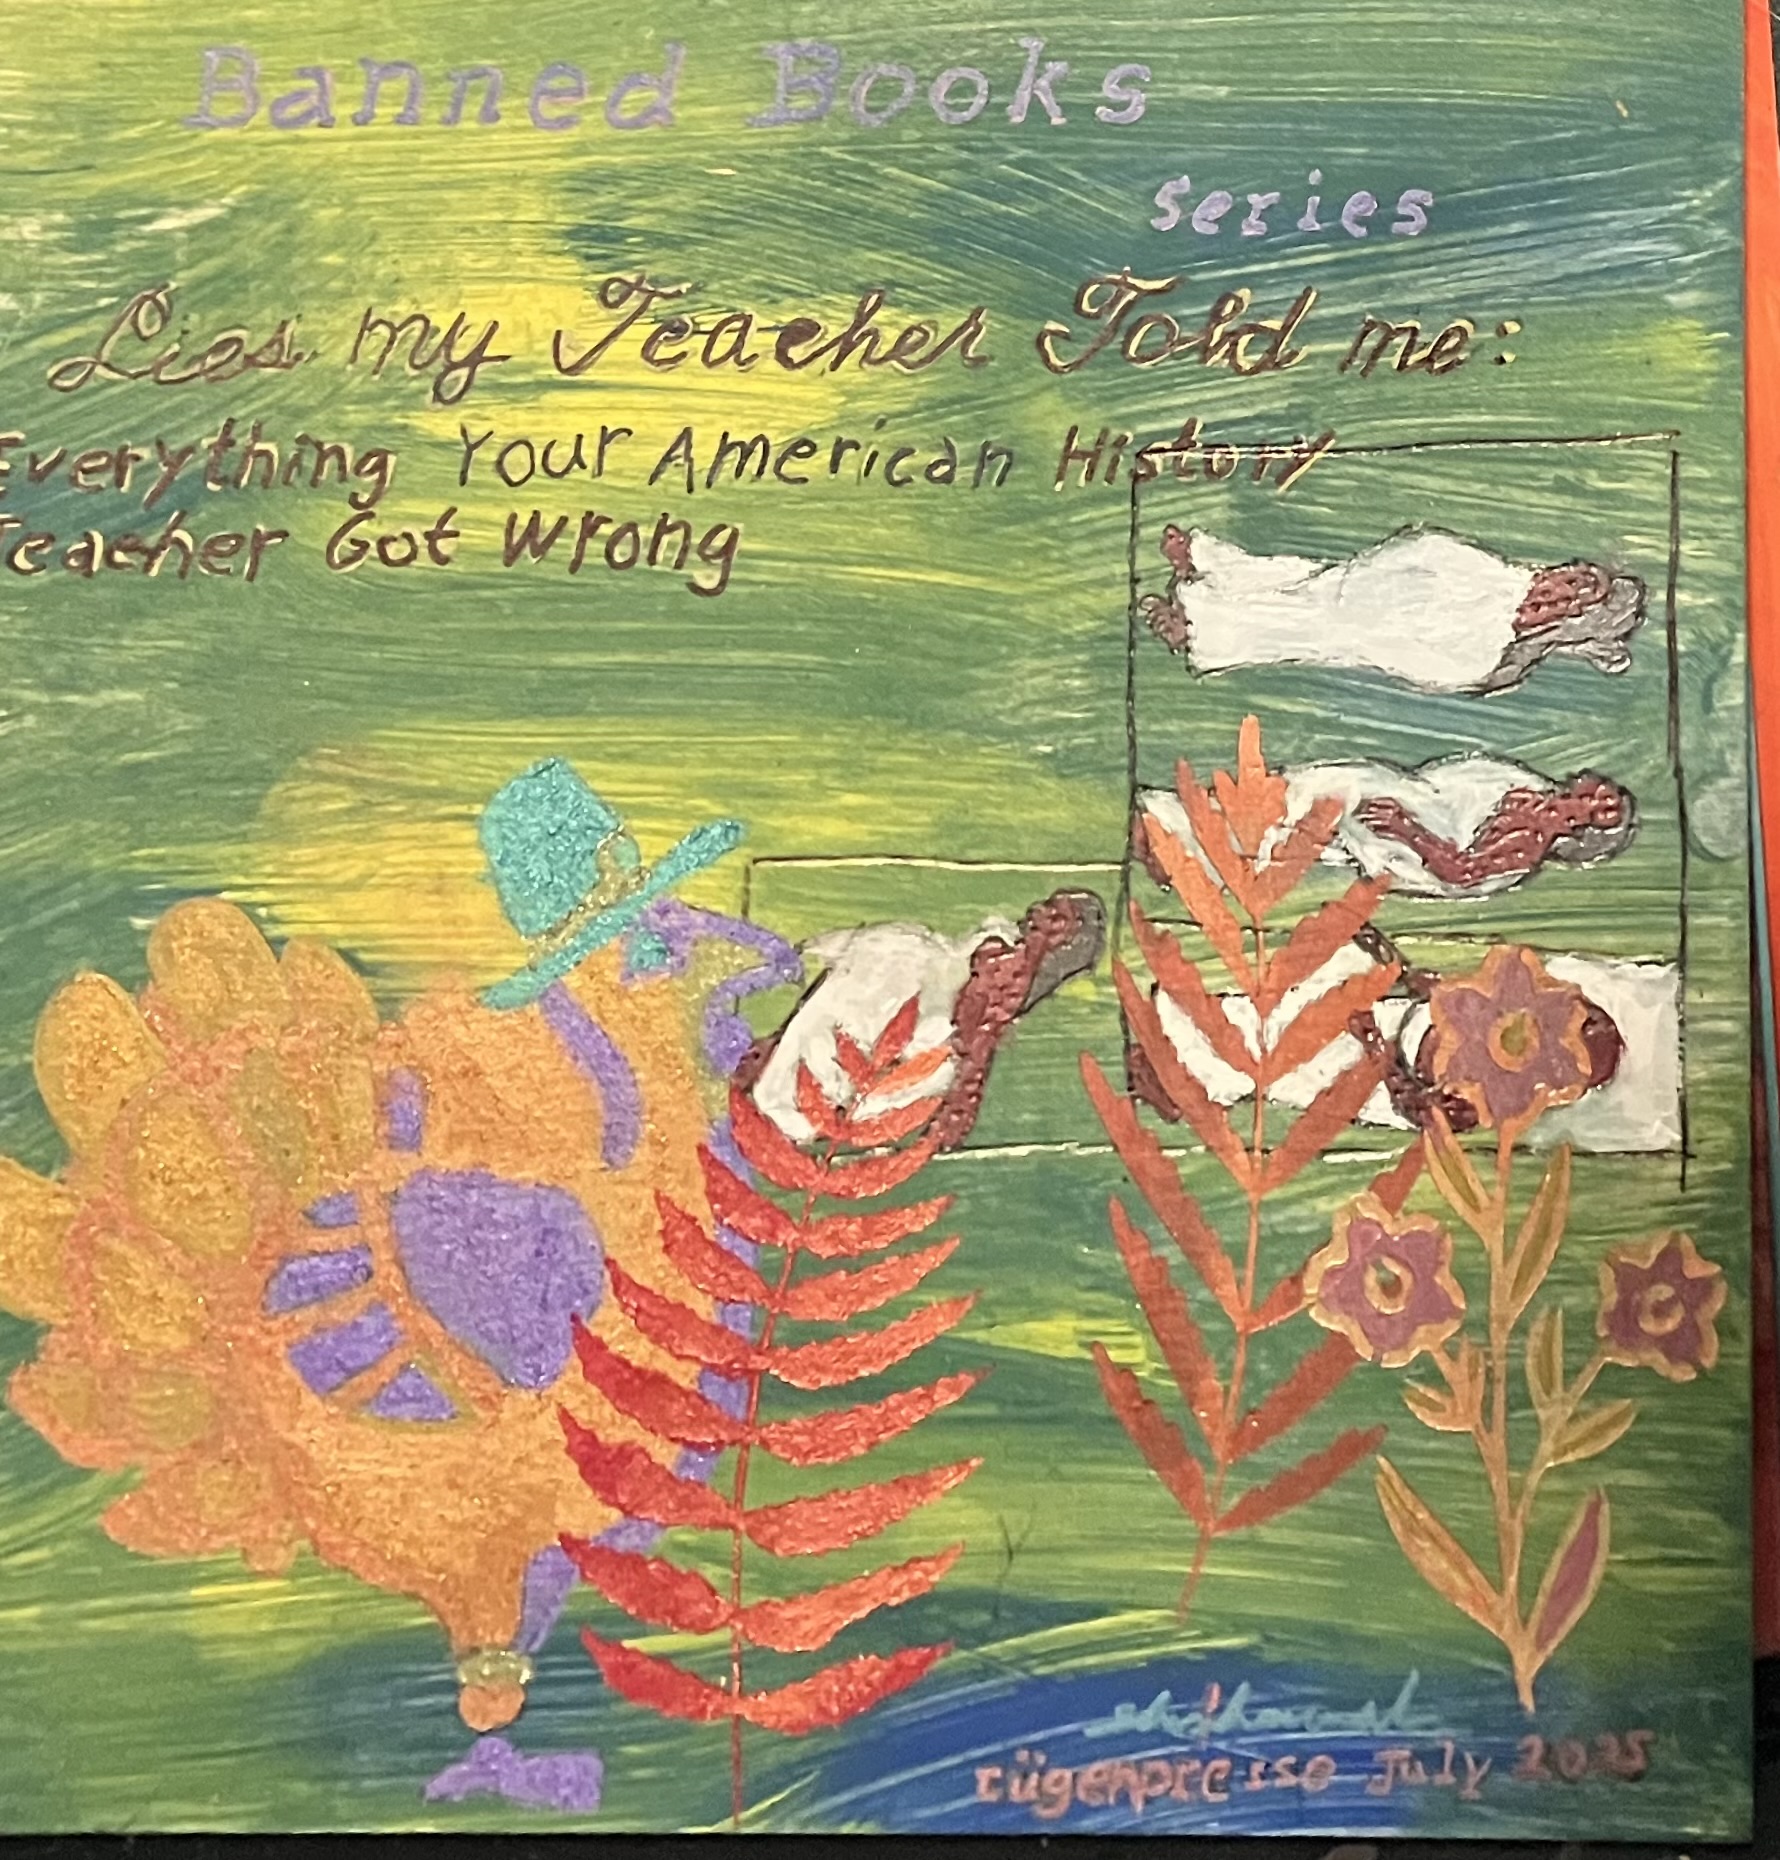 Banned Books
series
Lies my Teacher Told me:
Everything Your American History
Teacher Got Wrong
rügenpresse July 2025